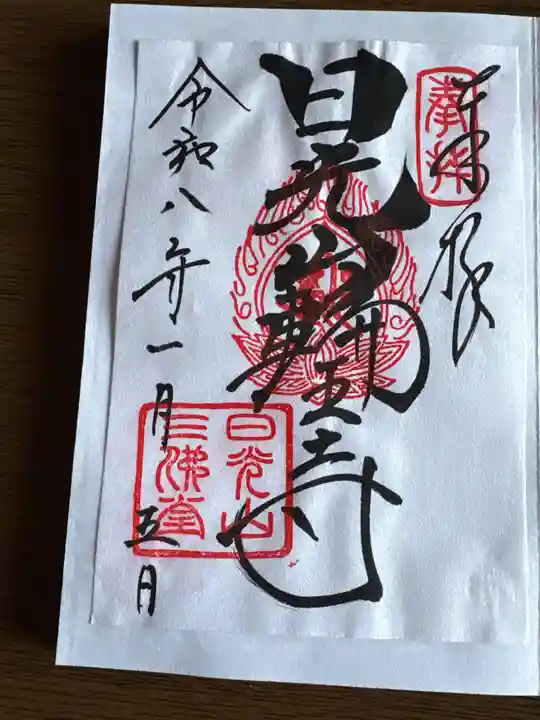 奉拝
日光山
輪王寺
日光山
三佛堂
令和八年一月五日